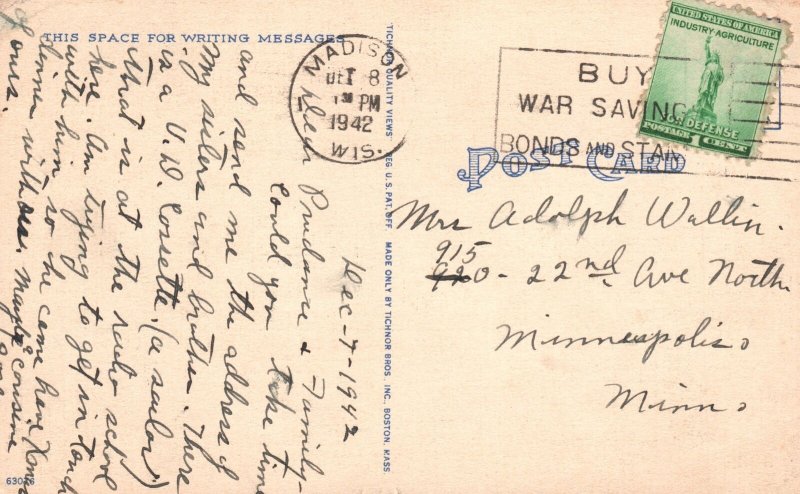 THIS SPACE FOR WRITING MESSAGES
Dec-7-1942
Dear Prudance & Family-
Could you take time
and send me the address of
My sisters and brother. There
is a V. W. Cossette. (a sailor)
that is at the radio school
here. Am trying to get in touch
with him so he came have Xmas
dinner with us. Maybe cousine
of ours.
63076
TICHNOR QUALITY VIEWS REG. U.S. PAT. OFF. MADE ONLY BY TICHNOR BROS. INC., BOSTON, MASS.
MADISON
DEC 8
1 30 PM
1942
WIS.
BUY
WAR SAVING
BONDS AND STAM
UNITED STATES OF AMERICA
INDUSTRY AGRICULTURE
FOR DEFENSE
POSTAGE 1 CENT
POST CARD
Mrs Adolph Wallin.
915
920 - 22nd Ave North
Minneapolis
Minn.